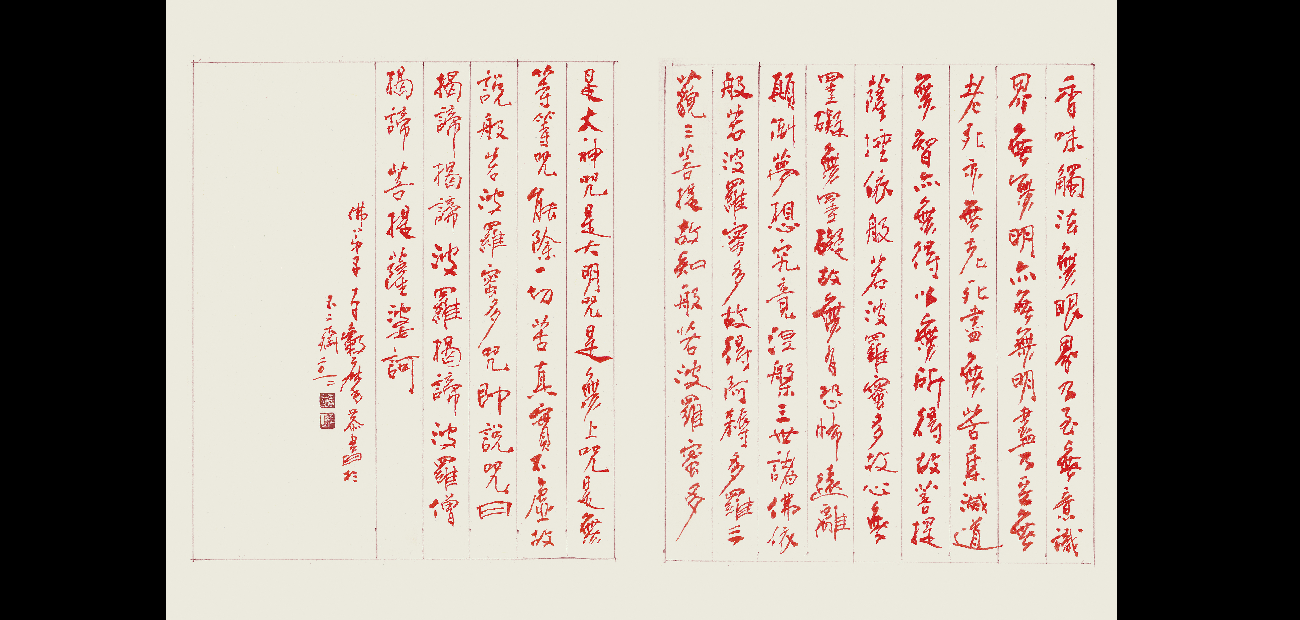 香味觸法無眼界乃至無意識
界無無明亦無無明盡乃至無
老死亦無老死盡無苦集滅道
無智亦無得以無所得故菩提
薩埵依般若波羅蜜多故心無
罣礙無罣礙故無有恐怖遠離
顛倒夢想究竟涅槃三世諸佛依
般若波羅蜜多故得阿耨多羅三
藐三菩提故知般若波羅蜜多
是大神咒是大明咒是無上咒是無
等等咒能除一切苦真實不虛故
說般若波羅蜜多咒即說咒曰
揭諦揭諦波羅揭諦波羅僧
揭諦菩提薩婆訶
佛弟子恭書於
不二齋